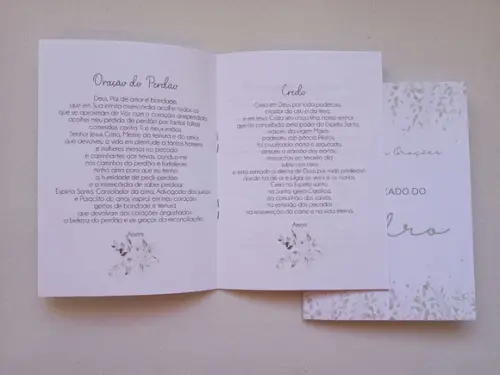 Oração do Perdão
Deus, Pai de amor e bondade,
que em Sua infinita misericórdia acolhe todos os
que se aproximam de Vós com o coração arrependido,
acolhei meu pedido de perdão por tantas faltas
cometidas contra Ti e meus irmãos.
Senhor Jesus Cristo, Mestre da ternura e do amor,
que devolveis a vida em plenitude a tantos homens
e mulheres imersos no pecado
e caminhantes das trevas, conduz-me
nos caminhos do perdão e fortalece
minha alma para que eu tenha
a humildade de pedir perdão
e a misericórdia de saber perdoar.
Espírito Santo, Consolador da alma, Advogado dos justos
e Paráclito do amor, inspirai em meu coração
gestos de bondade e ternura
que devolvam aos corações angustiados
a beleza do perdão e as graças da reconciliação.
Amém
Credo
Creio em Deus pai todo poderoso,
criador do céu e da terra,
e em Jesus Cristo seu único filho, nosso senhor,
que foi concebido pelo poder do Espírito Santo,
nasceu da virgem Maria,
padeceu sob pôncio Pilatos,
foi crucificado morto e sepultado,
desceu a mansão dos mortos,
ressuscitou ao terceiro dia
subiu aos céus
e está sentado a direita de Deus pai todo poderoso
donde há de vir a julgar os vivos e os mortos.
Creio no Espírito santo,
na Santa Igreja Católica,
na comunhão dos santos,
na remissão dos pecados
na ressurreição da carne e na vida eterna.
Amém
Orações
ZADO DO
dro